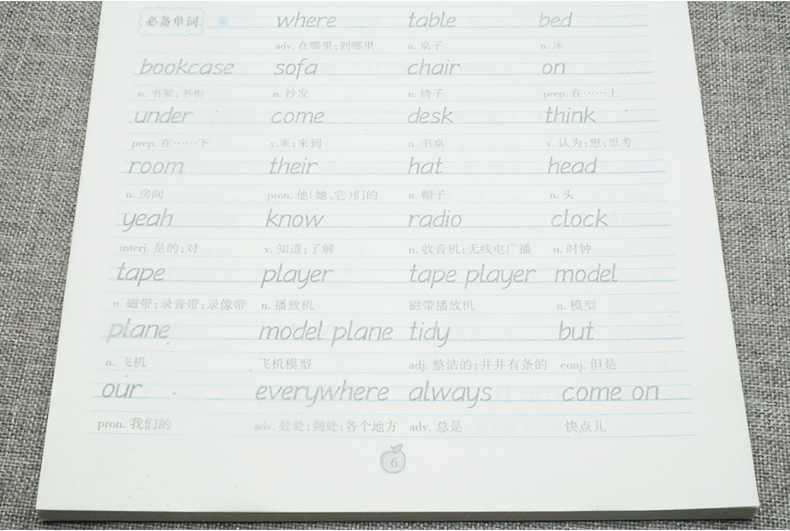 必备单词 where table bed
adv. 在哪里;到哪里 n. 桌子 n. 床
bookcase sofa chair on
n. 书架;书柜 n. 沙发 n. 椅子 prep. 在……上
under come desk think
prep. 在……下 v. 来;来到 n. 书桌 v. 认为;想;思考
room their hat head
n. 房间 pron. 他(她、它)们的 n. 帽子 n. 头
yeah know radio clock
interj. 是的;对 v. 知道;了解 n. 收音机;无线电广播 n. 时钟
tape player tape player model
n. 磁带;录音带;录像带 n. 播放机 磁带播放机 n. 模型
plane model plane tidy but
n. 飞机 飞机模型 adj. 整洁的;井井有条的 conj. 但是
our everywhere always come on
pron. 我们的 adv. 处处;到处;各个地方 adv. 总是 快点儿
6